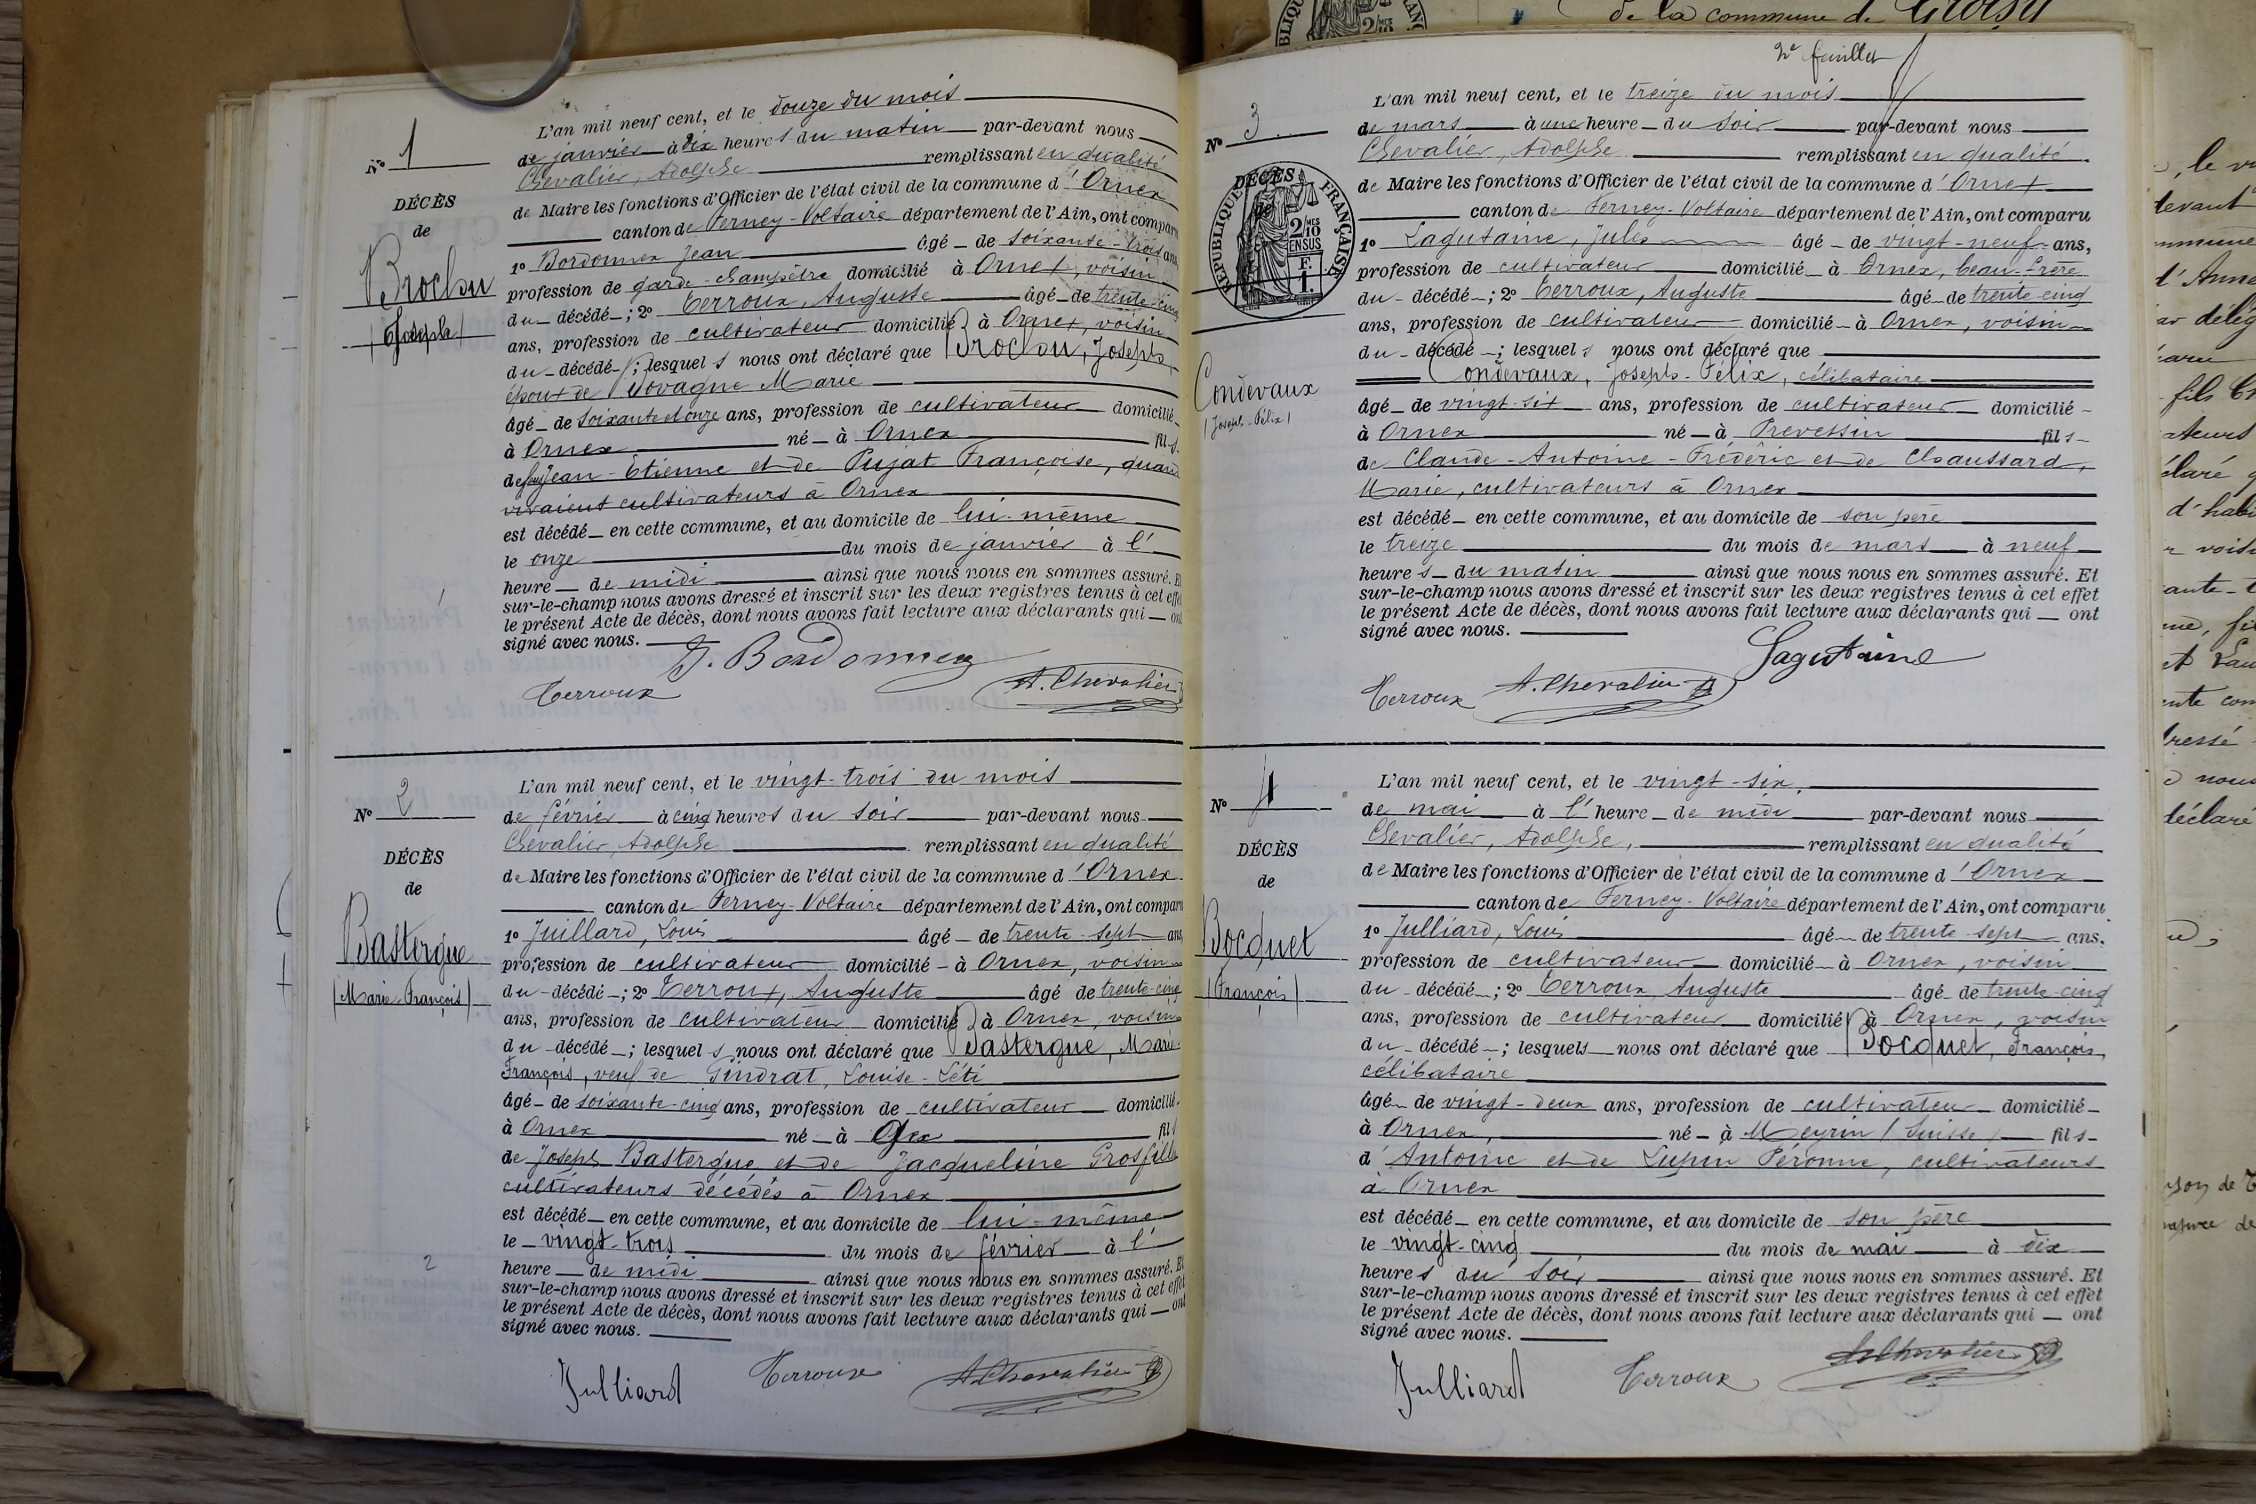 de la commune de Groisy
N° 1
DÉCÈS
de
Brochu
(Joseph)
L'an mil neuf cent, et le douze du mois
de janvier à dix heures du matin par-devant nous
Chevalier, Adolphe remplissant en qualité
de Maire les fonctions d'Officier de l'état civil de la commune d'Ornex
canton de Ferney-Voltaire département de l'Ain, ont comparu
1° Bordonnex Jean âgé de soixante-trois ans,
profession de garde-champêtre domicilié à Ornex, voisin
du décédé ; 2° Terroux, Auguste âgé de trente-cinq
ans, profession de cultivateur domicilié à Ornex, voisin
du décédé ; lesquels nous ont déclaré que Brochu, Joseph,
époux de Sovagne Marie
âgé de soixante et onze ans, profession de cultivateur domicilié
à Ornex né à Ornex fils
de feu Jean-Etienne et de Pujat Françoise, quand
vivaient cultivateurs à Ornex
est décédé en cette commune, et au domicile de lui-même
le onze du mois de janvier à l'
heure de midi ainsi que nous nous en sommes assuré. Et
sur-le-champ nous avons dressé et inscrit sur les deux registres tenus à cet effet
le présent Acte de décès, dont nous avons fait lecture aux déclarants qui ont
signé avec nous.
J. Bordonnex
Terroux A. Chevalier
N° 2
DÉCÈS
de
Bastergue
(Marie-François)
L'an mil neuf cent, et le vingt-trois du mois
de février à cinq heures du soir par-devant nous
Chevalier, Adolphe remplissant en qualité
de Maire les fonctions d'Officier de l'état civil de la commune d'Ornex
canton de Ferney-Voltaire département de l'Ain, ont comparu
1° Juillard, Louis âgé de trente-sept ans,
profession de cultivateur domicilié à Ornex, voisin
du décédé ; 2° Terroux, Auguste âgé de trente-cinq
ans, profession de cultivateur domicilié à Ornex, voisin
du décédé ; lesquels nous ont déclaré que Bastergue, Marie-
François, veuf de Gindrat, Louise-Léti
âgé de soixante-cinq ans, profession de cultivateur domicilié
à Ornex né à Gex fils
de Joseph Bastergue et de Jacqueline Grosfill
cultivateurs décédés à Ornex
est décédé en cette commune, et au domicile de lui-même
le vingt-trois du mois de février à l'
heure de midi ainsi que nous nous en sommes assuré. Et
sur-le-champ nous avons dressé et inscrit sur les deux registres tenus à cet effet
le présent Acte de décès, dont nous avons fait lecture aux déclarants qui ont
signé avec nous.
2
Julliard Terroux A. Chevalier
2e feuillet
N° 3
DÉCÈS
de
RÉPUBLIQUE FRANÇAISE
2/10 MES
EN SUS
F.
1.
Condevaux
(Joseph-Félix)
L'an mil neuf cent, et le treize du mois
de mars à une heure du soir par-devant nous
Chevalier, Adolphe remplissant en qualité
de Maire les fonctions d'Officier de l'état civil de la commune d'Ornex
canton de Ferney-Voltaire département de l'Ain, ont comparu
1° Lagutaine, Jules âgé de vingt-neuf ans,
profession de cultivateur domicilié à Ornex, beau-frère
du décédé ; 2° Terroux, Auguste âgé de trente-cinq
ans, profession de cultivateur domicilié à Ornex, voisin
du décédé ; lesquels nous ont déclaré que
Condevaux, Joseph-Félix, célibataire
âgé de vingt-six ans, profession de cultivateur domicilié
à Ornex né à Prevessin fils
de Claude-Antoine-Frédéric et de Chaussard,
Marie, cultivateurs à Ornex
est décédé en cette commune, et au domicile de son père
le treize du mois de mars à neuf
heures du matin ainsi que nous nous en sommes assuré. Et
sur-le-champ nous avons dressé et inscrit sur les deux registres tenus à cet effet
le présent Acte de décès, dont nous avons fait lecture aux déclarants qui ont
signé avec nous.
Lagutaine
Terroux A. Chevalier
N° 4
DÉCÈS
de
Bocquet
(François)
L'an mil neuf cent, et le vingt-six,
de mai à l'heure de midi par-devant nous
Chevalier, Adolphe, remplissant en qualité
de Maire les fonctions d'Officier de l'état civil de la commune d'Ornex
canton de Ferney-Voltaire département de l'Ain, ont comparu
1° Julliard, Louis âgé de trente-sept ans,
profession de cultivateur domicilié à Ornex, voisin
du décédé ; 2° Terroux, Auguste âgé de trente-cinq
ans, profession de cultivateur domicilié à Ornex, voisin
du décédé ; lesquels nous ont déclaré que Bocquet, François,
célibataire
âgé de vingt-deux ans, profession de cultivateur domicilié
à Ornex, né à Meyrin (Suisse) fils
d'Antoine et de Lupin Péronne, cultivateurs
à Ornex
est décédé en cette commune, et au domicile de son père
le vingt-cinq du mois de mai à dix
heures du soir ainsi que nous nous en sommes assuré. Et
sur-le-champ nous avons dressé et inscrit sur les deux registres tenus à cet effet
le présent Acte de décès, dont nous avons fait lecture aux déclarants qui ont
signé avec nous.
Julliard Terroux A. Chevalier